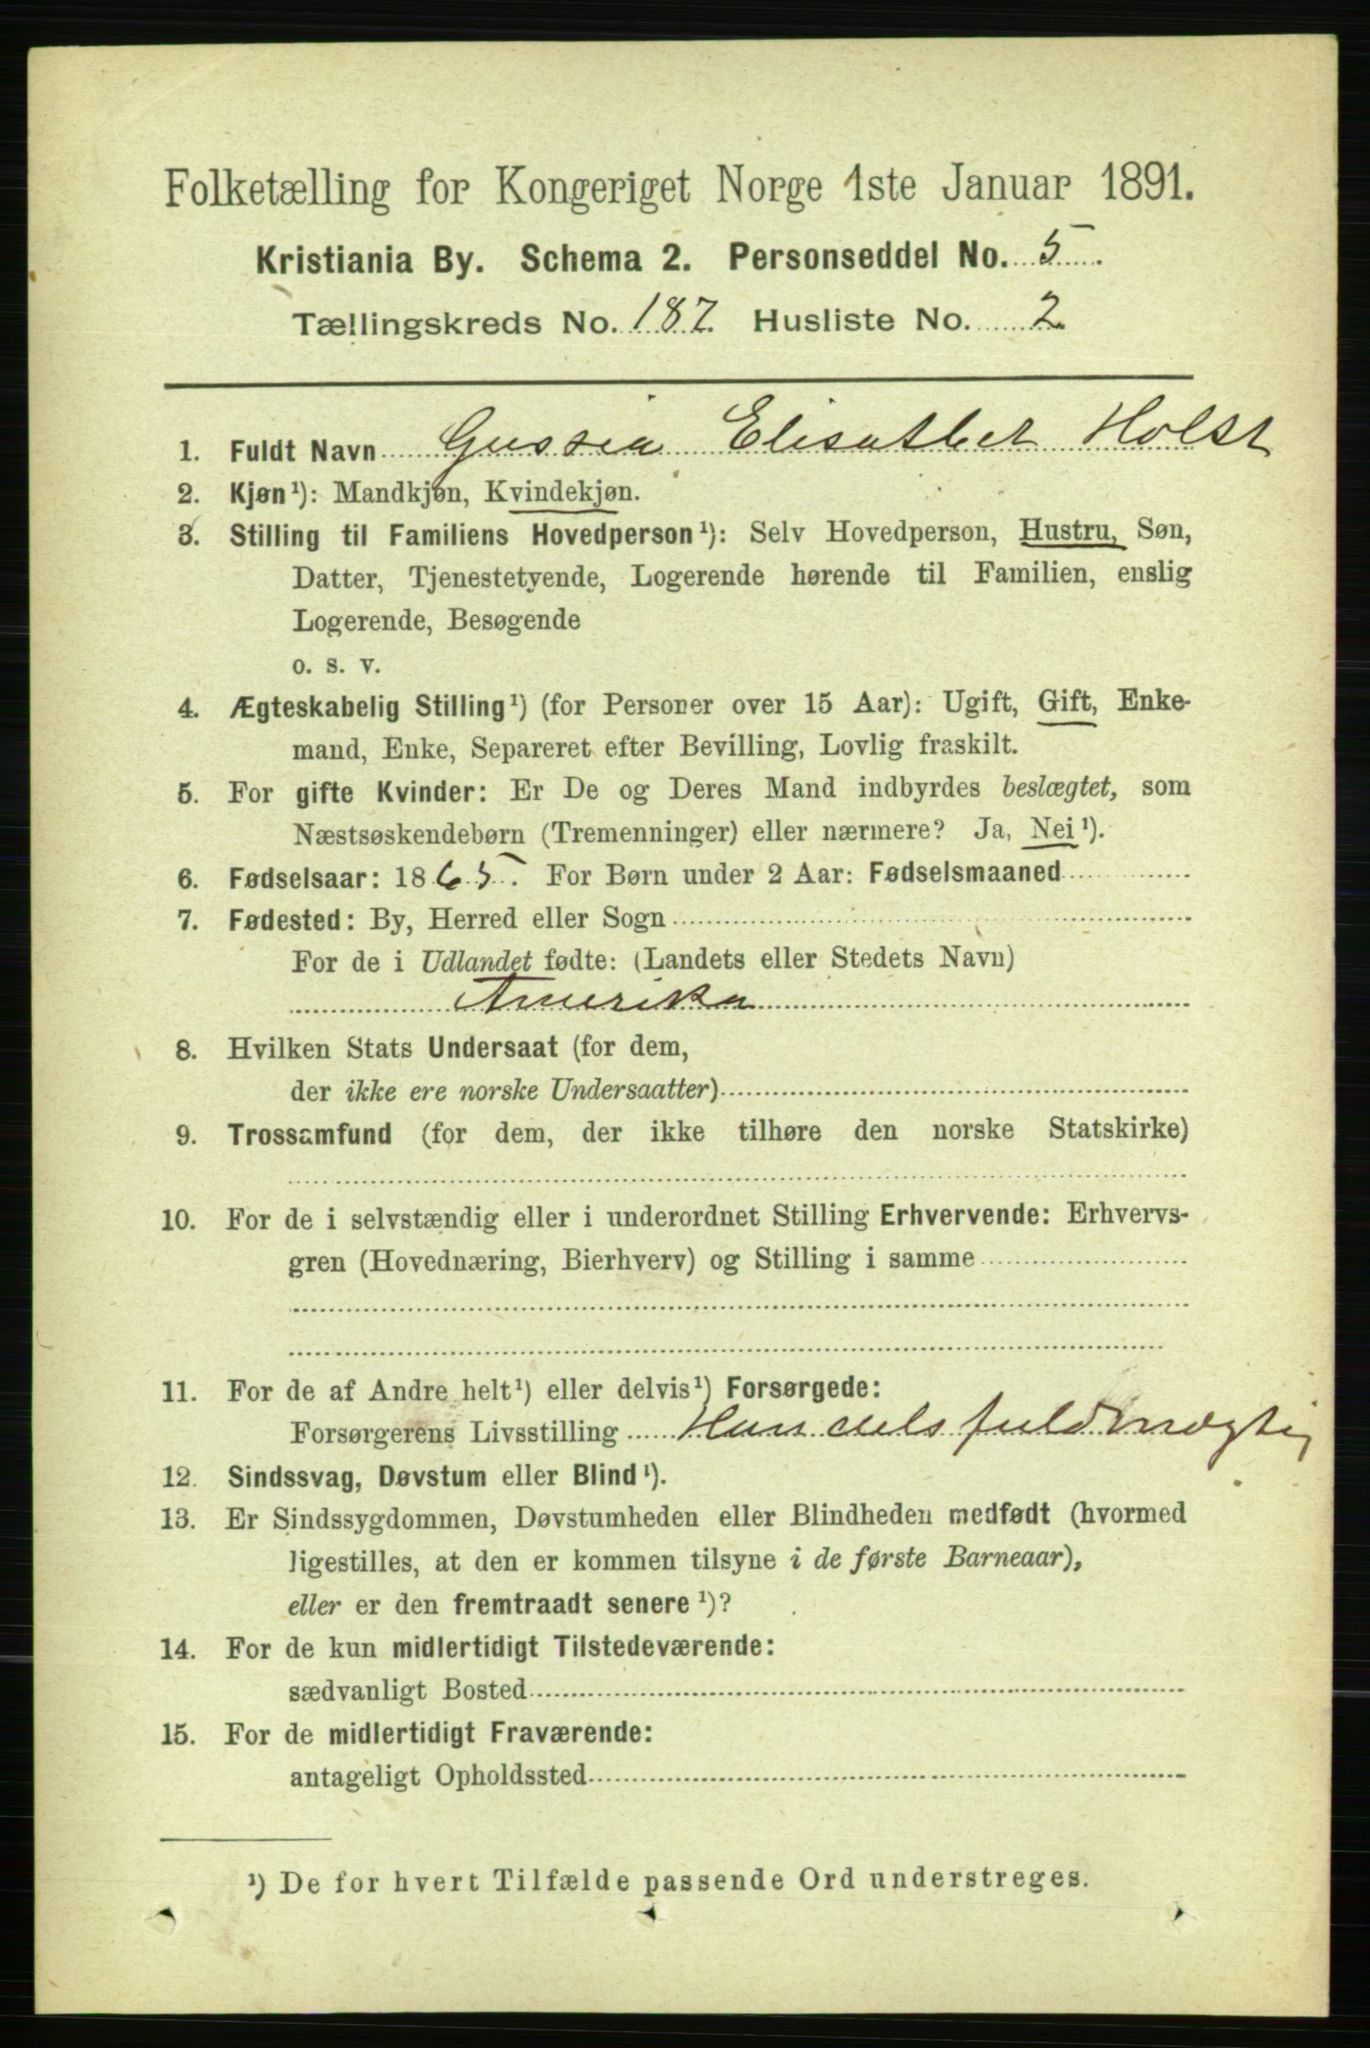 Folketælling for Kongeriget Norge 1ste Januar 1891.
Kristiania By. Schema 2. Personseddel No. 5.
Tællingskreds No. 187. Husliste No. 2.
1. Fuldt Navn Gussia Elisabthet Holst
2. Kjøn¹): Mandkjøn, Kvindekjøn.
3. Stilling til Familiens Hovedperson¹): Selv Hovedperson, Hustru, Søn,
Datter, Tjenestetyende, Logerende hørende til Familien, enslig
Logerende, Besøgende
o. s. v.
4. Ægteskabelig Stilling¹) (for Personer over 15 Aar): Ugift, Gift, Enke-
mand, Enke, Separeret efter Bevilling, Lovlig fraskilt.
5. For gifte Kvinder: Er De og Deres Mand indbyrdes beslægtet, som
Næstsøskendebørn (Tremenninger) eller nærmere? Ja, Nei¹).
6. Fødselsaar: 1865. For Børn under 2 Aar: Fødselsmaaned
7. Fødested: By, Herred eller Sogn
For de i Udlandet fødte: (Landets eller Stedets Navn)
Amerika
8. Hvilken Stats Undersaat (for dem,
der ikke ere norske Undersaatter)
9. Trossamfund (for dem, der ikke tilhøre den norske Statskirke)
10. For de i selvstændig eller i underordnet Stilling Erhvervende: Erhvervs-
gren (Hovednæring, Bierhverv) og Stilling i samme
11. For de af Andre helt¹) eller delvis¹) Forsørgede:
Forsørgerens Livsstilling Handelsfuldmægtig
12. Sindssvag, Døvstum eller Blind¹).
13. Er Sindssygdommen, Døvstumheden eller Blindheden medfødt (hvormed
ligestilles, at den er kommen tilsyne i de første Barneaar),
eller er den fremtraadt senere¹)?
14. For de kun midlertidigt Tilstedeværende:
sædvanligt Bosted
15. For de midlertidigt Fraværende:
antageligt Opholdssted
¹) De for hvert Tilfælde passende Ord understreges.